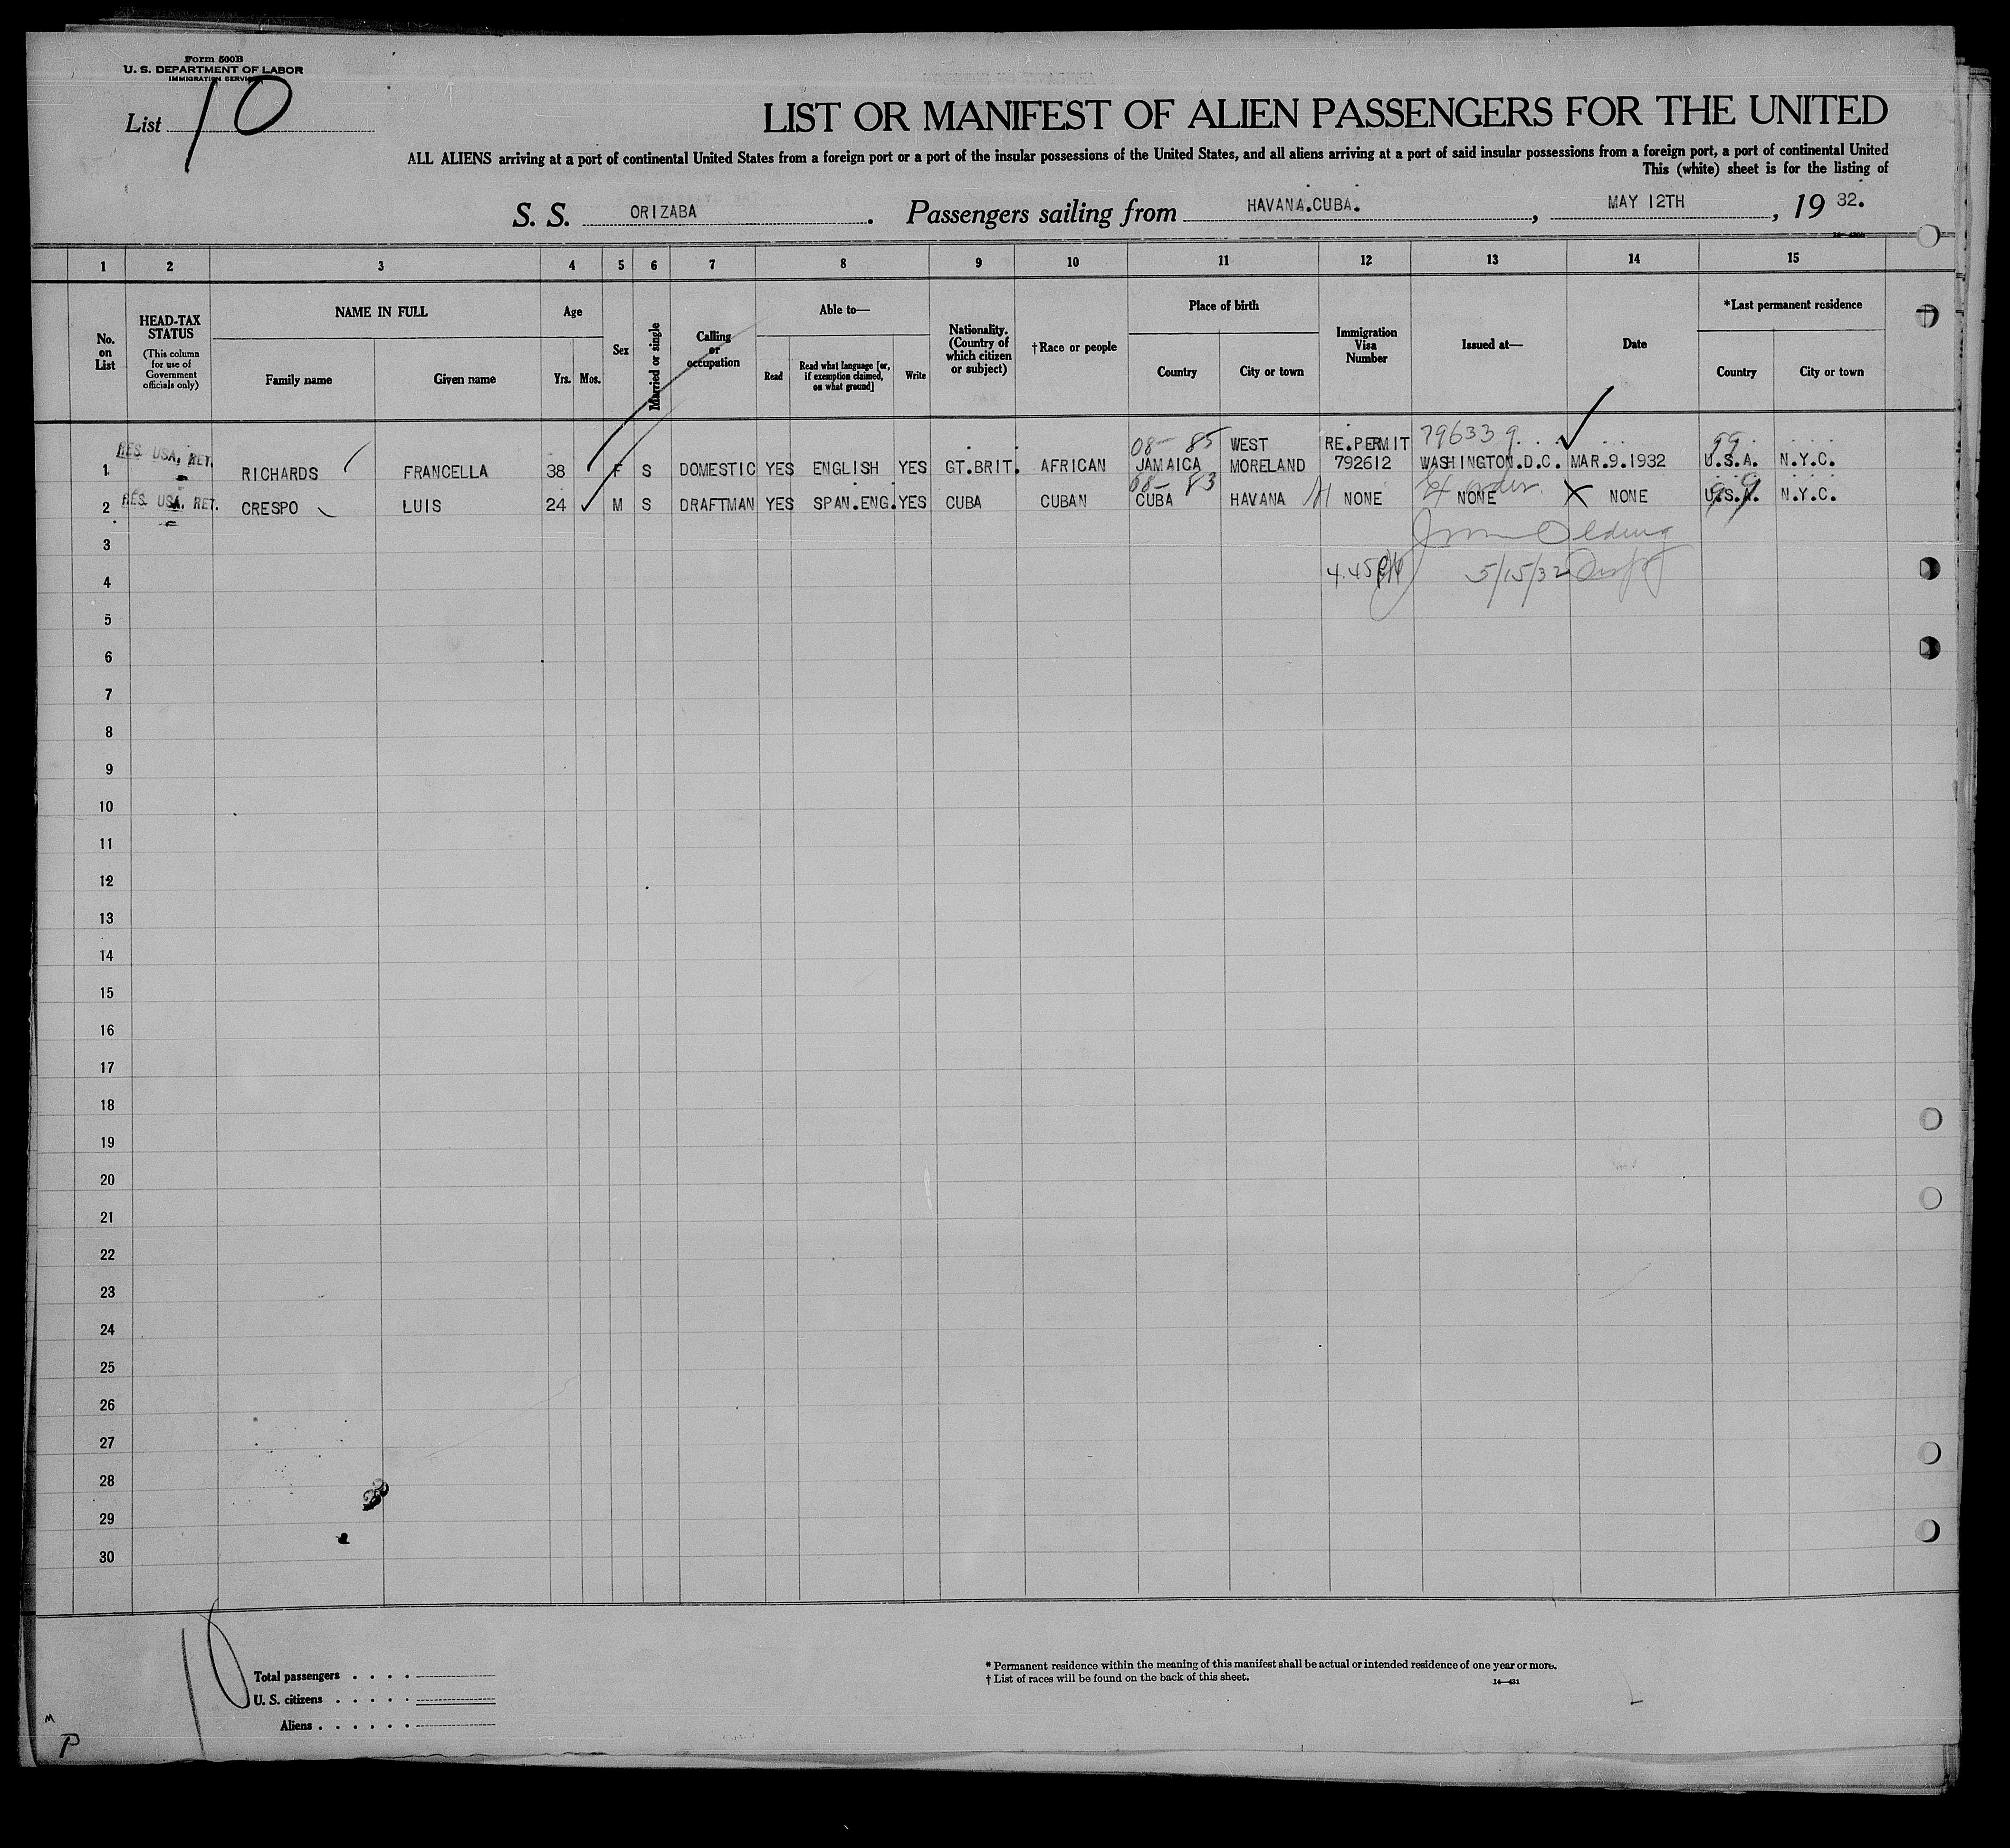 Form 500B
U. S. DEPARTMENT OF LABOR
IMMIGRATION SERVICE
List 10
LIST OR MANIFEST OF ALIEN PASSENGERS FOR THE UNITED
ALL ALIENS arriving at a port of continental United States from a foreign port or a port of the insular possessions of the United States, and all aliens arriving at a port of said insular possessions from a foreign port, a port of continental United
This (white) sheet is for the listing of
S. S. ORIZABA. Passengers sailing from HAVANA.CUBA., MAY 12TH, 19 32.
1 2 3 4 5 6 7 8 9 10 11 12 13 14 15
No. on List
HEAD-TAX STATUS
(This column for use of Government officials only)
NAME IN FULL
Family name Given name
Age
Yrs. Mos.
Sex
Married or single
Calling or occupation
Able to—
Read
Read what language [or, if exemption claimed, on what ground]
Write
Nationality. (Country of which citizen or subject)
†Race or people
Place of birth
Country City or town
Immigration Visa Number
Issued at—
Date
*Last permanent residence
Country City or town
08- 85 WEST RE.PERMIT 796339 99
1 RES. USA, RET. RICHARDS FRANCELLA 38 F S DOMESTIC YES ENGLISH YES GT.BRIT. AFRICAN JAMAICA MORELAND 792612 WASHINGTON.D.C. MAR.9.1932 U.S.A. N.Y.C.
08- 83 99
2 RES. USA, RET. CRESPO LUIS 24 M S DRAFTMAN YES SPAN.ENG. YES CUBA CUBAN CUBA HAVANA NONE NONE NONE U.S.A. N.Y.C.
3
4 4.45 5/15/32
5
6
7
8
9
10
11
12
13
14
15
16
17
18
19
20
21
22
23
24
25
26
27
28
29
30
10
Total passengers . . . .
U. S. citizens . . . . .
Aliens . . . . . .
* Permanent residence within the meaning of this manifest shall be actual or intended residence of one year or more.
† List of races will be found on the back of this sheet.
14—431
M
P